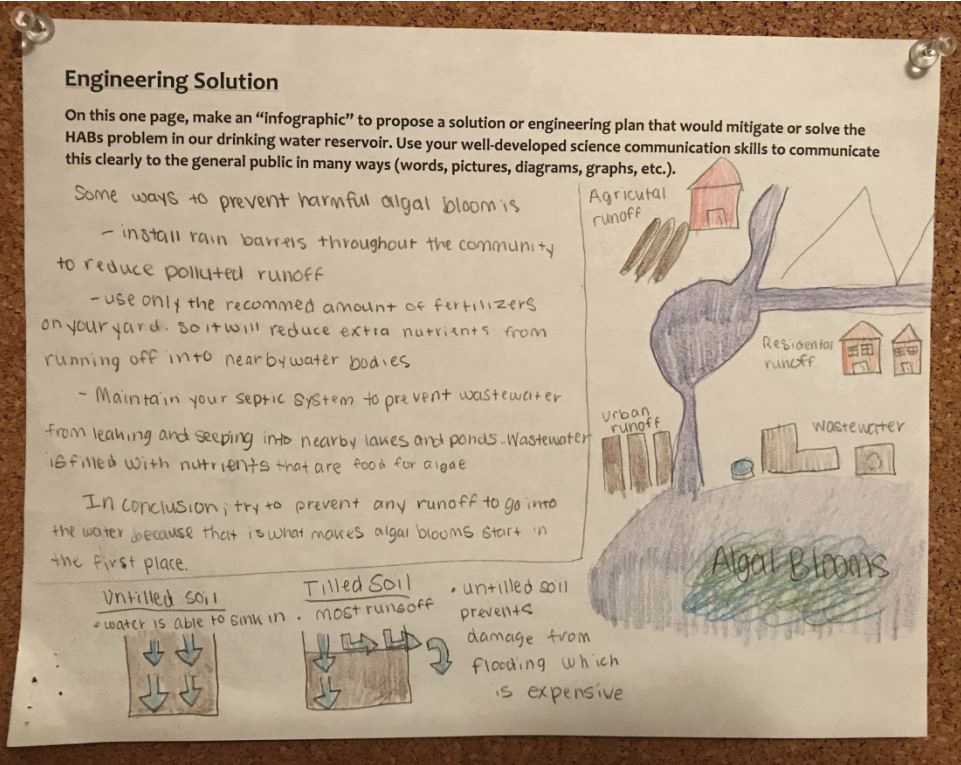 Engineering Solution
On this one page, make an “infographic” to propose a solution or engineering plan that would mitigate or solve the
HABs problem in our drinking water reservoir. Use your well-developed science communication skills to communicate
this clearly to the general public in many ways (words, pictures, diagrams, graphs, etc.).
Some ways to prevent harmful algal bloom is
- install rain barrels throughout the community
to reduce polluted runoff
- use only the recommed amount of fertilizers
on your yard. so it will reduce extra nutrients from
running off into nearby water bodies
- Maintain your septic system to prevent wastewater
from leaking and seeping into nearby lakes and ponds. Wastewater
is filled with nutrients that are food for algae
In conclusion, try to prevent any runoff to go into
the water because that is what makes algal blooms start in
the first place.
Agricutal
runoff
Residental
runoff
urban
runoff
wastewater
Algal Blooms
Untilled soil
• water is able to sink in
Tilled Soil
• most runsoff
• untilled soil
prevents
damage from
flooding which
is expensive